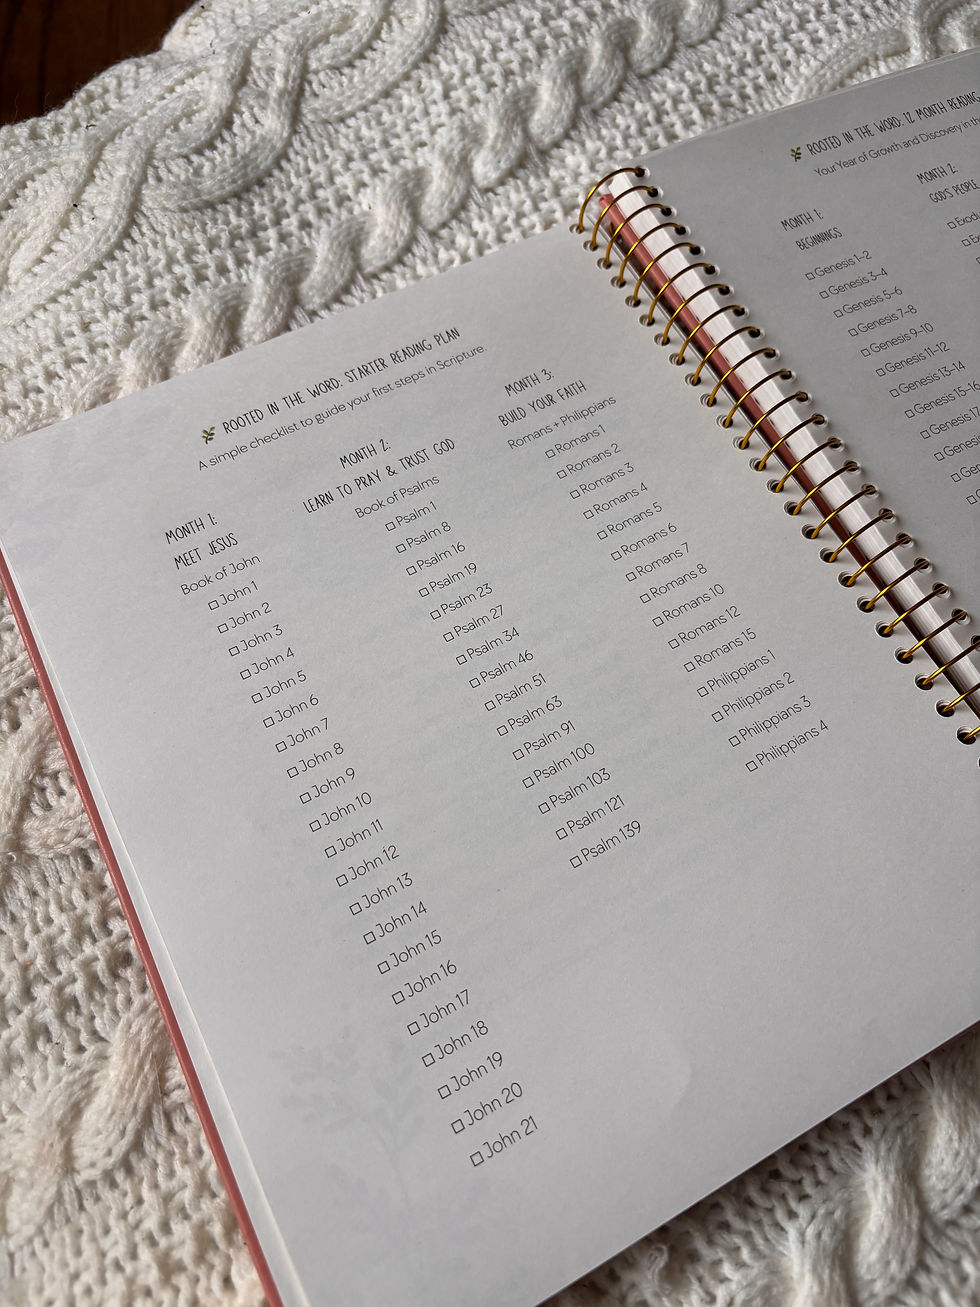 ROOTED IN THE WORD: STARTER READING PLAN
A simple checklist to guide your first steps in Scripture.
MONTH 1:
MEET JESUS
Book of John
John 1
John 2
John 3
John 4
John 5
John 6
John 7
John 8
John 9
John 10
John 11
John 12
John 13
John 14
John 15
John 16
John 17
John 18
John 19
John 20
John 21
MONTH 2:
LEARN TO PRAY & TRUST GOD
Book of Psalms
Psalm 1
Psalm 8
Psalm 16
Psalm 19
Psalm 23
Psalm 27
Psalm 34
Psalm 46
Psalm 51
Psalm 63
Psalm 91
Psalm 100
Psalm 103
Psalm 121
Psalm 139
MONTH 3:
BUILD YOUR FAITH
Romans + Philippians
Romans 1
Romans 2
Romans 3
Romans 4
Romans 5
Romans 6
Romans 7
Romans 8
Romans 10
Romans 12
Romans 15
Philippians 1
Philippians 2
Philippians 3
Philippians 4
ROOTED IN THE WORD: 12 MONTH READING
Your Year of Growth and Discovery in
MONTH 1:
BEGINNINGS
Genesis 1-2
Genesis 3-4
Genesis 5-6
Genesis 7-8
Genesis 9-10
Genesis 11-12
Genesis 13-14
Genesis
Genesis
MONTH 2:
GOD'S PEOPLE